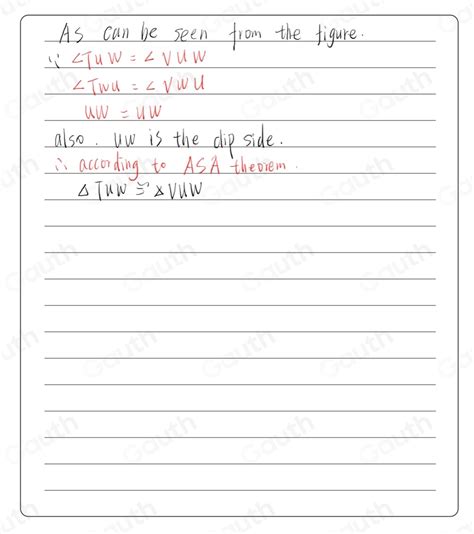 As can be seen from the figure.
∵ ∠TUW = ∠VUW
∠TWU = ∠VWU
UW = UW
also. UW is the clip side.
∴ according to ASA theorem.
△TUW ≅ △VUW